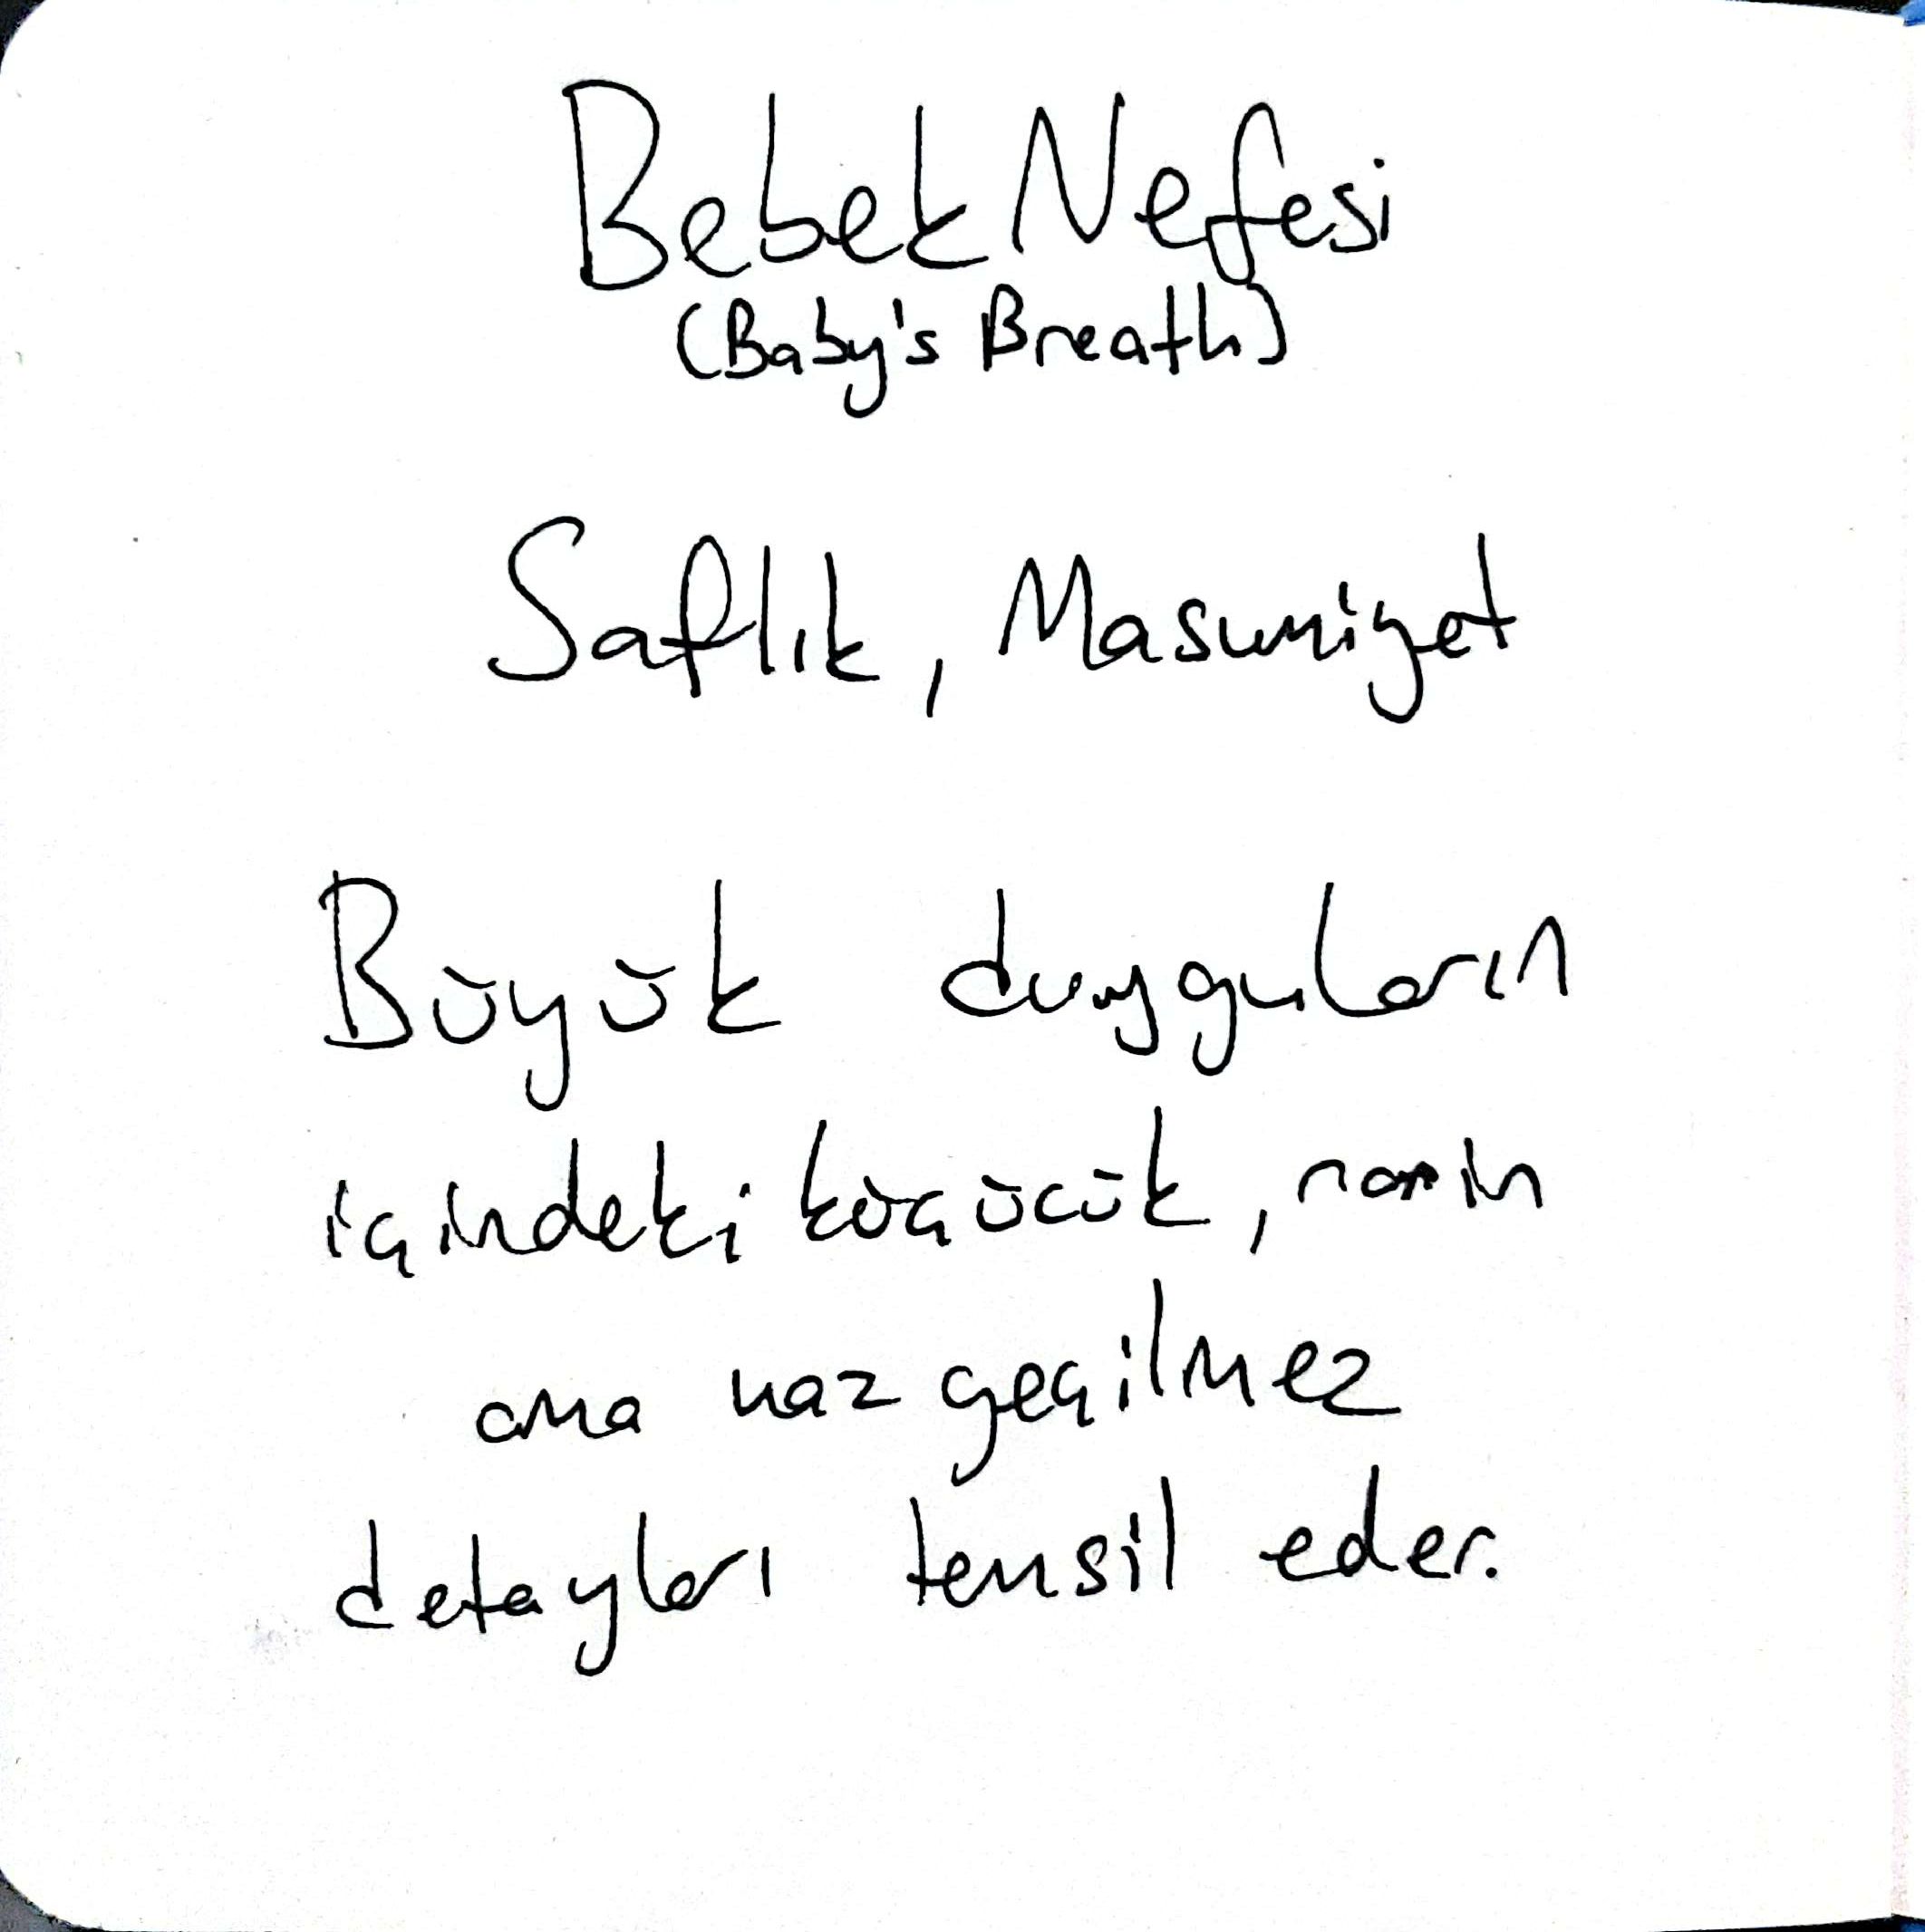 Bebek Nefesi
(Baby's Breath)
Saflık, Masumiyet
Büyük duyguların
içindeki küçücük, narin
ama vazgeçilmez
detayları temsil eder.